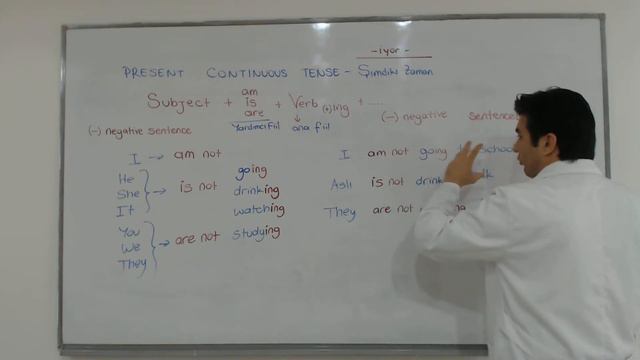 -iyor-
PRESENT CONTINUOUS TENSE - Şimdiki Zaman
am
Subject + is + Verb (+)ing + .....
are
Yardımcı Fiil ana fiil
(-) negative sentence
(-) negative sentences
I → am not
He
She → is not
It
You
We → are not
They
going
drinking
watching
studying
I am not going school
Aslı is not drink
They are not